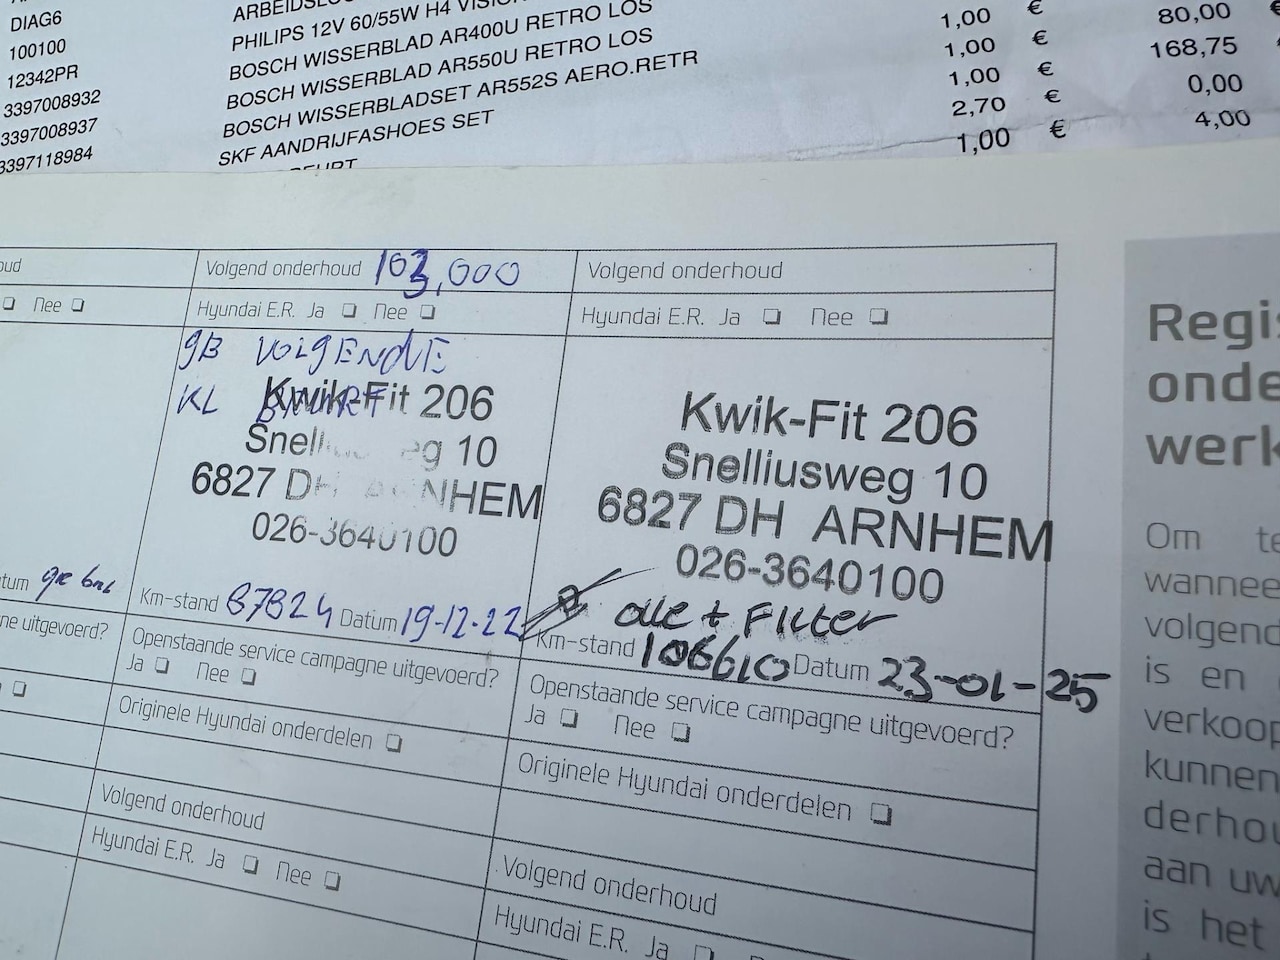 DIAG6
100100
12342PR
3397008932
3397008937
3397118984
PHILIPS 12V 60/55W H4
BOSCH WISSERBLAD AR400U RETRO LOS
BOSCH WISSERBLAD AR550U RETRO LOS
BOSCH WISSERBLADSET AR552S AERO.RETR
SKF AANDRIJFASHOES SET
1,00 € 80,00
1,00 € 168,75
1,00 € 0,00
2,70 € 4,00
1,00 €
Volgend onderhoud 103,000
Volgend onderhoud
Nee
Hyundai E.R. Ja Nee
Hyundai E.R. Ja Nee
gB VOLGENDE
KL BEURT
Kwik-Fit 206
Snell eg 10
6827 DH ARNHEM
026-3640100
Km-stand 87824 Datum 19-12-22
Kwik-Fit 206
Snelliusweg 10
6827 DH ARNHEM
026-3640100
olie + Filter
Km-stand 106610 Datum 23-01-25
uitgevoerd?
Openstaande service campagne uitgevoerd?
Ja Nee
Originele Hyundai onderdelen
Openstaande service campagne uitgevoerd?
Ja Nee
Originele Hyundai onderdelen
Volgend onderhoud
Hyundai E.R. Ja Nee
Volgend onderhoud
Hyundai E.R. Ja
Regis
onde
werk
Om te
wannee
volgend
is en
verkoop
kunnen
derhou
aan uw
is het